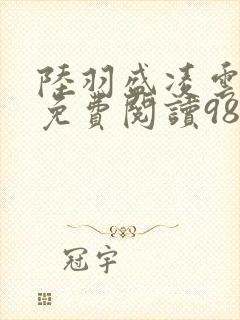 陸羽盛凌雲
免費閱讀98
冠宇